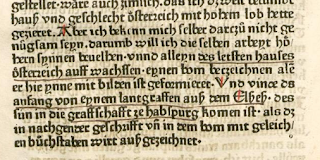 gestellet / wäre auch zimlich / das ich d'welt berümbt
hauß vnd geschlecht österreich mit hohem lob hette
gezieret. Aber ich bekenn mich selber darczů nicht ge
nůgsam seyn / darumb will ich die selben arbeyt hö
hern synnen beuelhen / vnnd alleyn des letsten hauses
österreich auff wachssen / eynen bom bezeichnen als
er hie ynne mit bilden ist geformieret. Vnd vince da
anfang von eynem lantgrauen auß dem Elseß / des
sun in die graffschafft ze habspurg komen ist / als d'z
in nachgender geschrifft vn in dem bom mit gleich
en bůchstaben wirt auff gezeichnet.